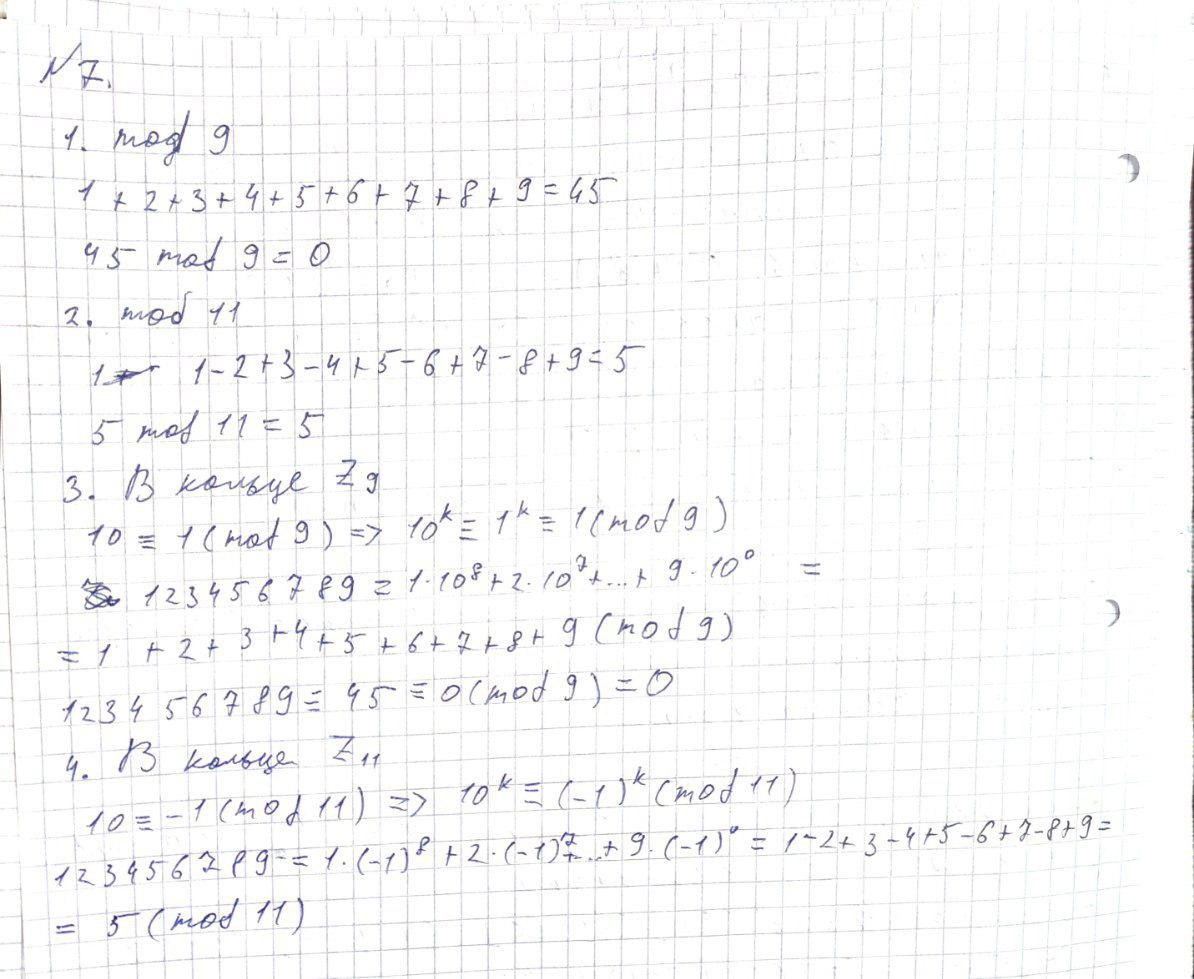 №7.
1. mod 9
1 + 2 + 3 + 4 + 5 + 6 + 7 + 8 + 9 = 45
45 mod 9 = 0
2. mod 11
1 - 2 + 3 - 4 + 5 - 6 + 7 - 8 + 9 = 5
5 mod 11 = 5
3. В кольце Z₉
10 ≡ 1 (mod 9) => 10ᵏ ≡ 1ᵏ ≡ 1 (mod 9)
123456789 = 1·10⁸ + 2·10⁷ + ... + 9·10⁰ =
= 1 + 2 + 3 + 4 + 5 + 6 + 7 + 8 + 9 (mod 9)
123456789 ≡ 45 ≡ 0 (mod 9) = 0
4. В кольце Z₁₁
10 ≡ -1 (mod 11) => 10ᵏ ≡ (-1)ᵏ (mod 11)
123456789 = 1·(-1)⁸ + 2·(-1)⁷ + ... + 9·(-1)⁰ = 1 - 2 + 3 - 4 + 5 - 6 + 7 - 8 + 9 =
= 5 (mod 11)